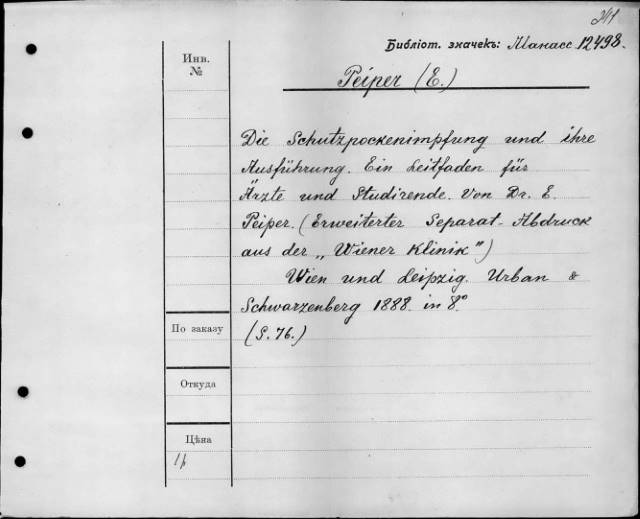 Библіот. значекъ: Манасс 12498.
Инв.
№
Peiper (E.)
Die Schutzpockenimpfung und ihre
Ausführung. Ein Leitfaden für
Ärzte und Studirende. Von Dr. E.
Peiper. (Erweiterter Separat-Abdruck
aus der „Wiener Klinik")
Wien und Leipzig. Urban &
Schwarzenberg 1888. in 8°
(S. 76.)
По заказу
Откуда
Цѣна
1р